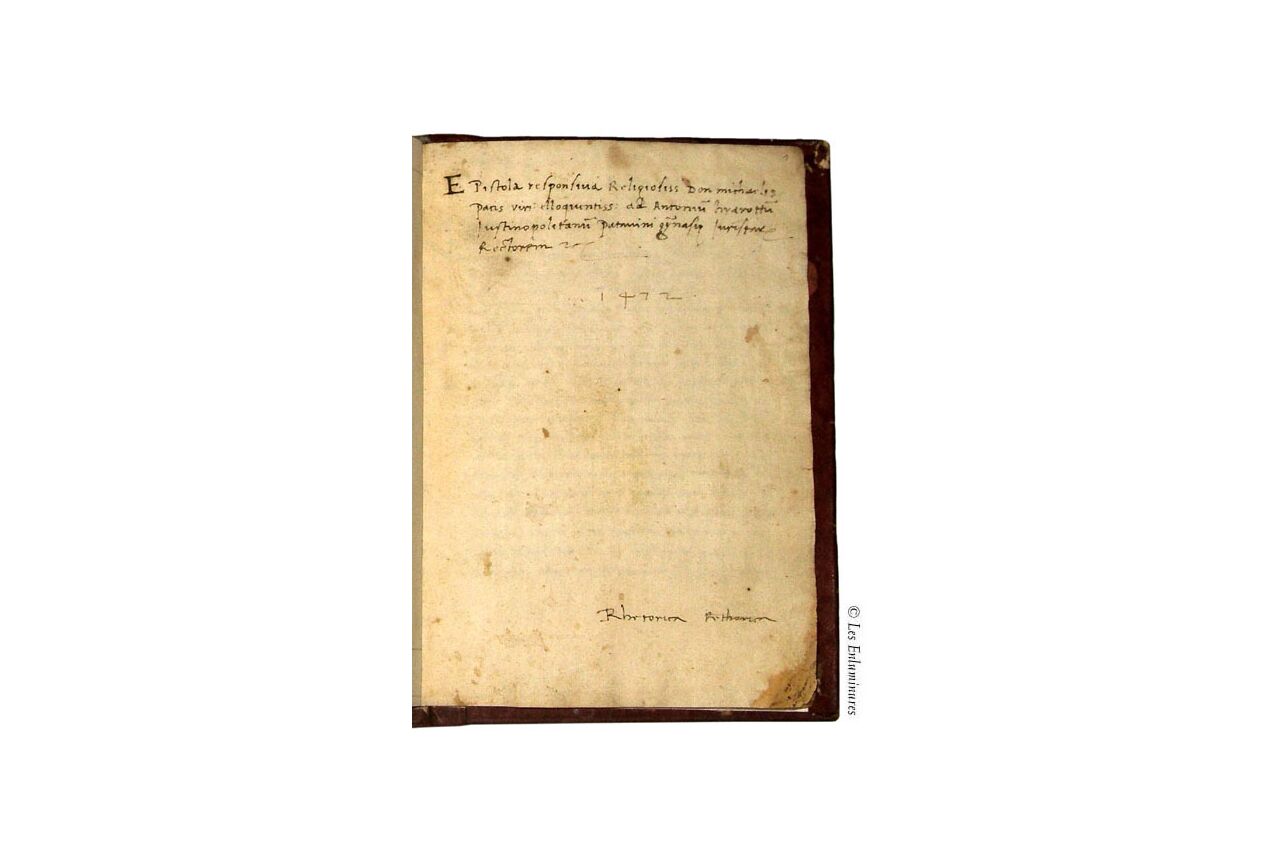 EPistola responsiva Religiosiss Don michaelis
Pacis viri elloquentiss: ad Antoniũ
Iustinopolitanũ Patavini gỹnasij Iuristar
Rectorem
1472
Rhetorica Rethorica
© Les Enluminures